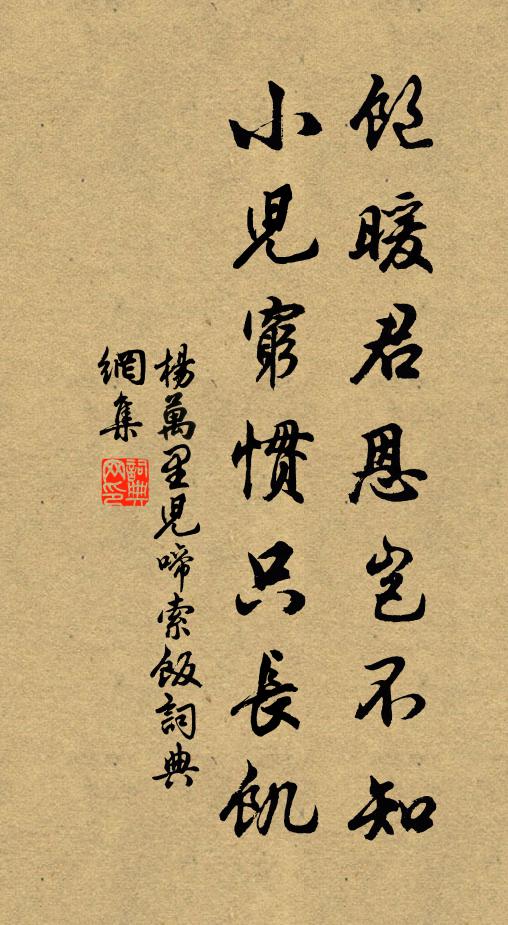 飽暖君恩豈不知
小兒窮慣只長飢
楊萬里兒啼索飯詞典
網集
詞典
网印